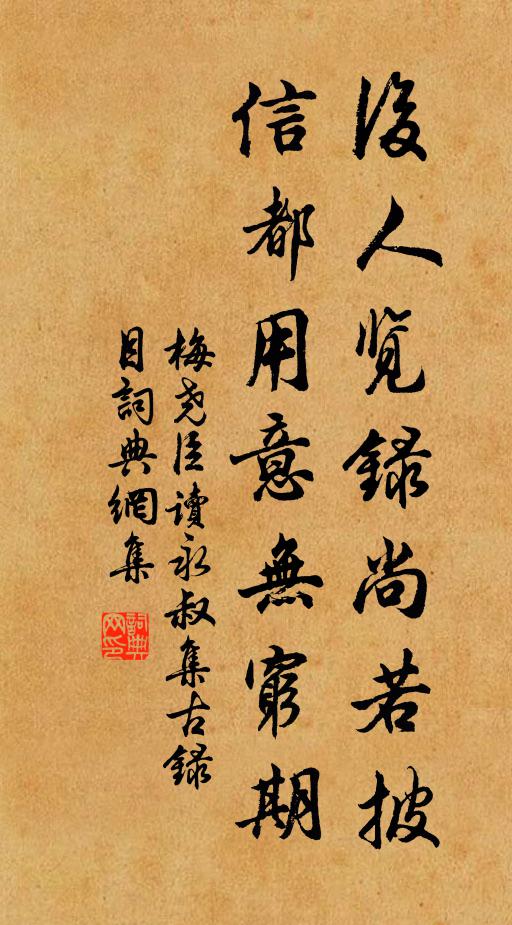 後人覽録尚若披
信都用意無窮期
梅堯臣讀永叔集古録
目詞典網集
詞典网印